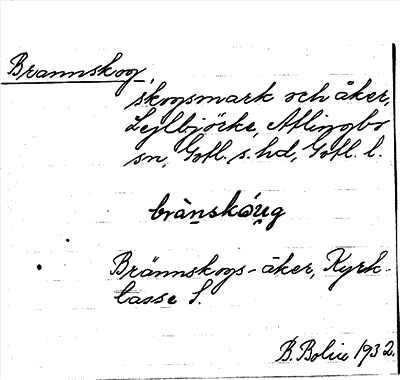 Brännskog,
skogsmark och åker,
Lejlbjöcke, Atlingbo
sn, Gotl. s. hd, Gotl. l.
brànskóug
Brännskogs-åker, Kyrk-
lasse S.
B. Bolin 1932.